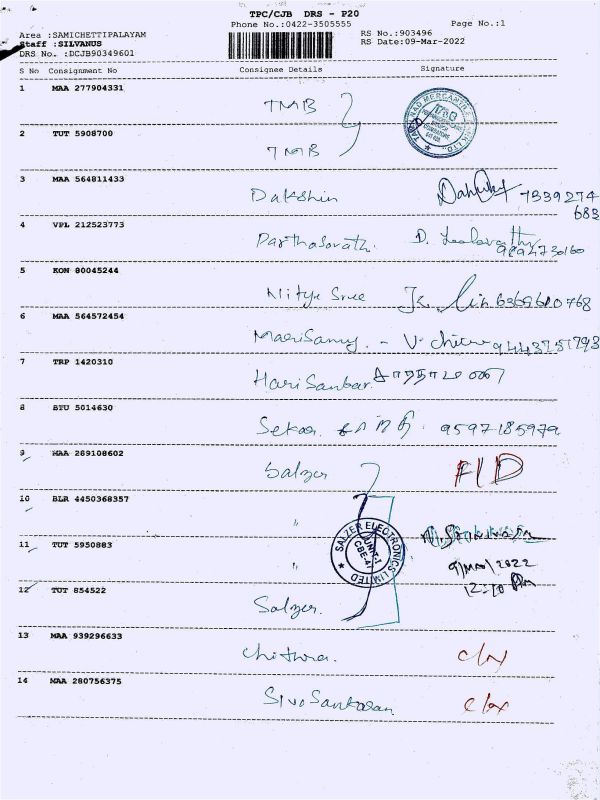 TPC/CJB DRS - P20
Phone No.:0422-3505555
Page No.:1
Area :SAMICHETTIPALAYAM
RS No.:903496
Staff :SILVANUS
RS Date:09-Mar-2022
DRS No. :DCJB90349601
S No Consignment No Consignee Details Signature
1 MAA 277904331 TMB
2 TUT 5908700 TMB
3 MAA 564811433 Dakshin 7339274
683
4 VPL 212523773 Parthasarathi.
5 KON 80045244 Nitya Sree
6 MAA 564572454 Marisamy. - V. Chitra
7 TRP 1420310 Hari Sankar.
8 BTU 5014630 Sekar. 9597185979
9 MAA 269108602 Salzer F/D
10 BLR 4450368357 "
SALZER ELECTRONICS LIMITED
UNIT-1
CBE-47
11 TUT 5950883 " 9/Mar/2022
12 TUT 854522 Salzer.
13 MAA 939296633 Chithra.
14 MAA 280756375 Siva Sankaran